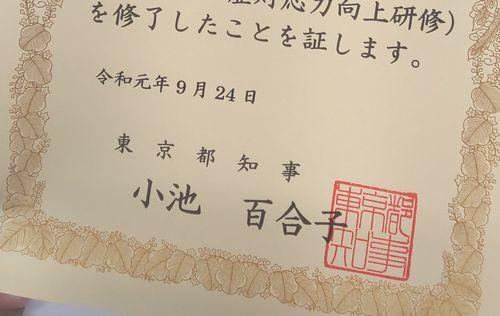 対応力向上研修)
を修了したことを証します。
令和元年9月24日
東京都知事
小池 百合子
東京都知事